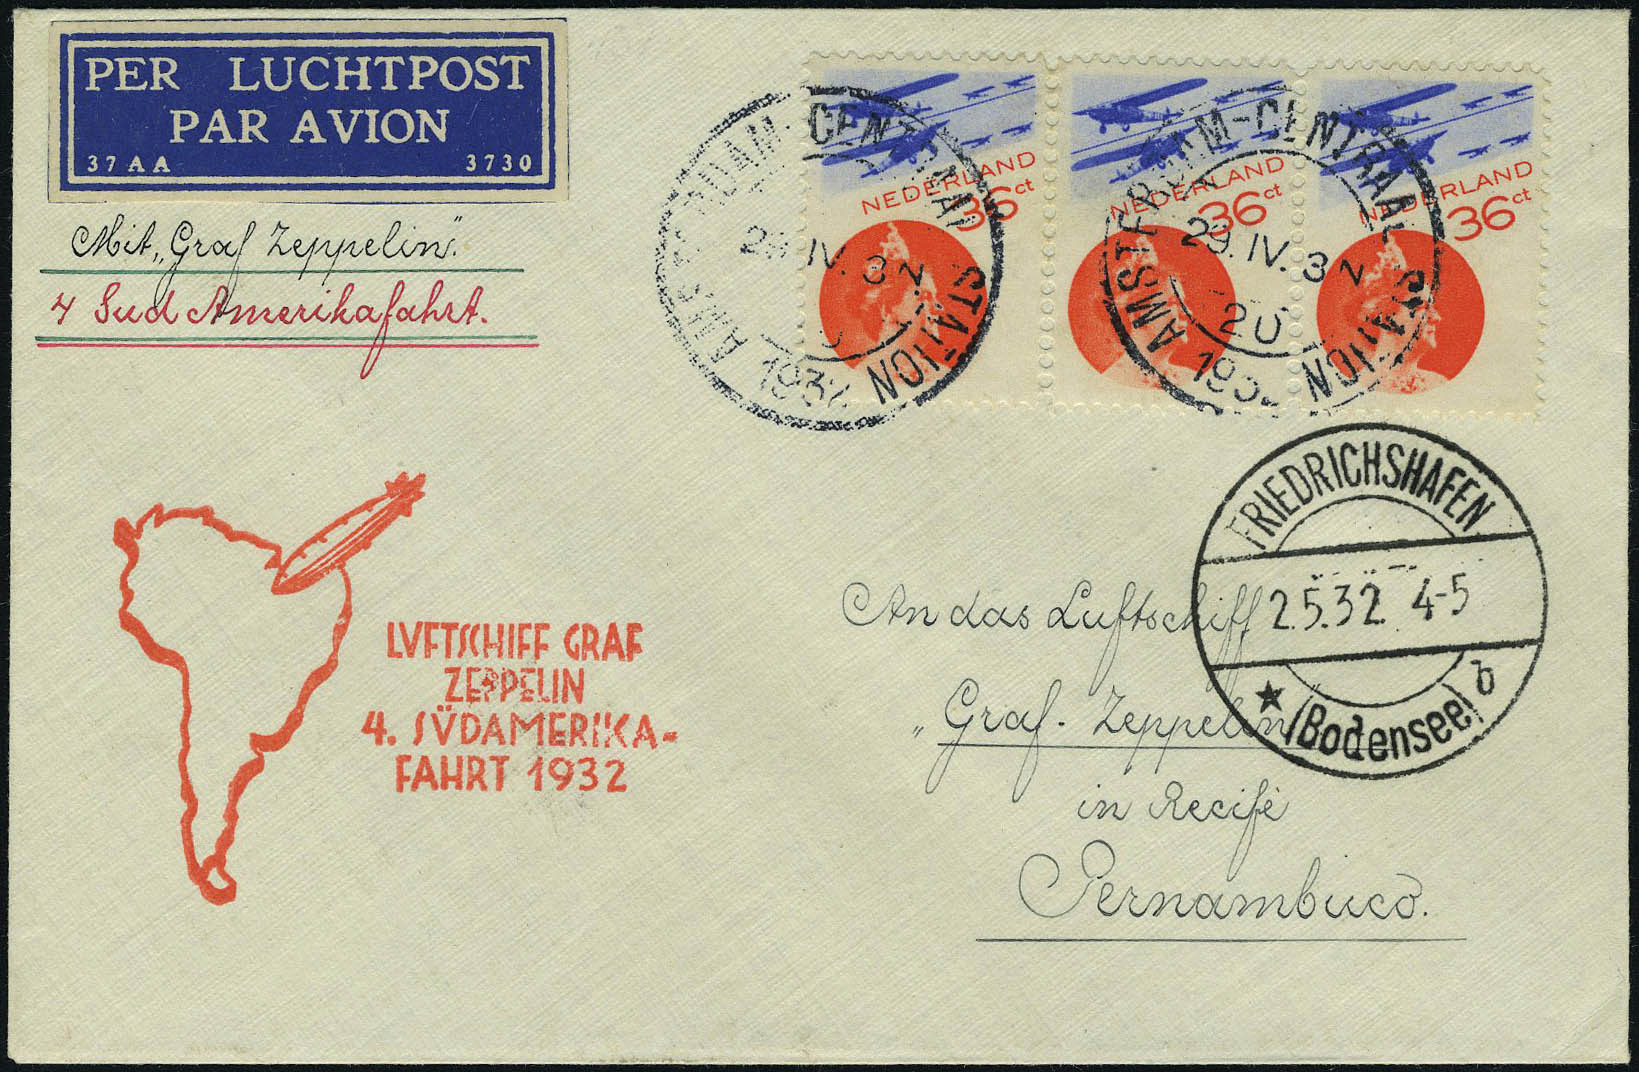 PER LUCHTPOST
PAR AVION
37AA 3730
Mit „Graf Zeppelin".
4 Sud Amerikafahrt.
NEDERLAND
36ct
NEDERLAND
36ct
NEDERLAND
36ct
AMSTERDAM-CENTRAAL STATION
29.IV.32
1932
AMSTERDAM-CENTRAAL STATION
29.IV.32
20
1932
FRIEDRICHSHAFEN
2.5.32. 4-5
★ (Bodensee) b
LVFTSCHIFF GRAF
ZEPPELIN
4. SÜDAMERIKA-
FAHRT 1932
An das Luftschiff
„Graf. Zeppelin"
in Recife
Pernambuco.